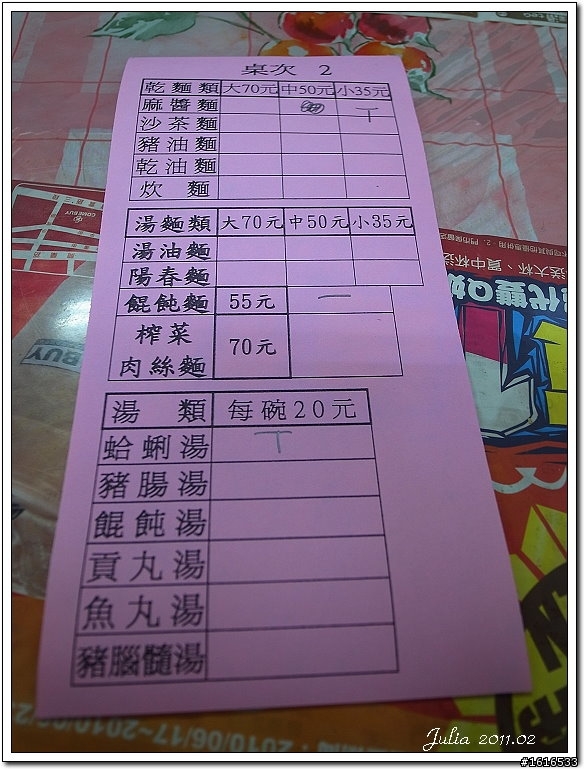 桌次 2
乾麵類 大70元 中50元 小35元
麻醬麵 T
沙茶麵
豬油麵
乾油麵
炊麵
湯麵類 大70元 中50元 小35元
湯油麵
陽春麵
餛飩麵 55元 一
榨菜
肉絲麵 70元
湯類 每碗20元
蛤蜊湯 T
豬腸湯
餛飩湯
貢丸湯
魚丸湯
豬腦髓湯
COMEBUY
送大杯、買中杯送
代雙Q奶
BUY
2010/06/17~2010/06/2
Julia 2011.02
#1616533